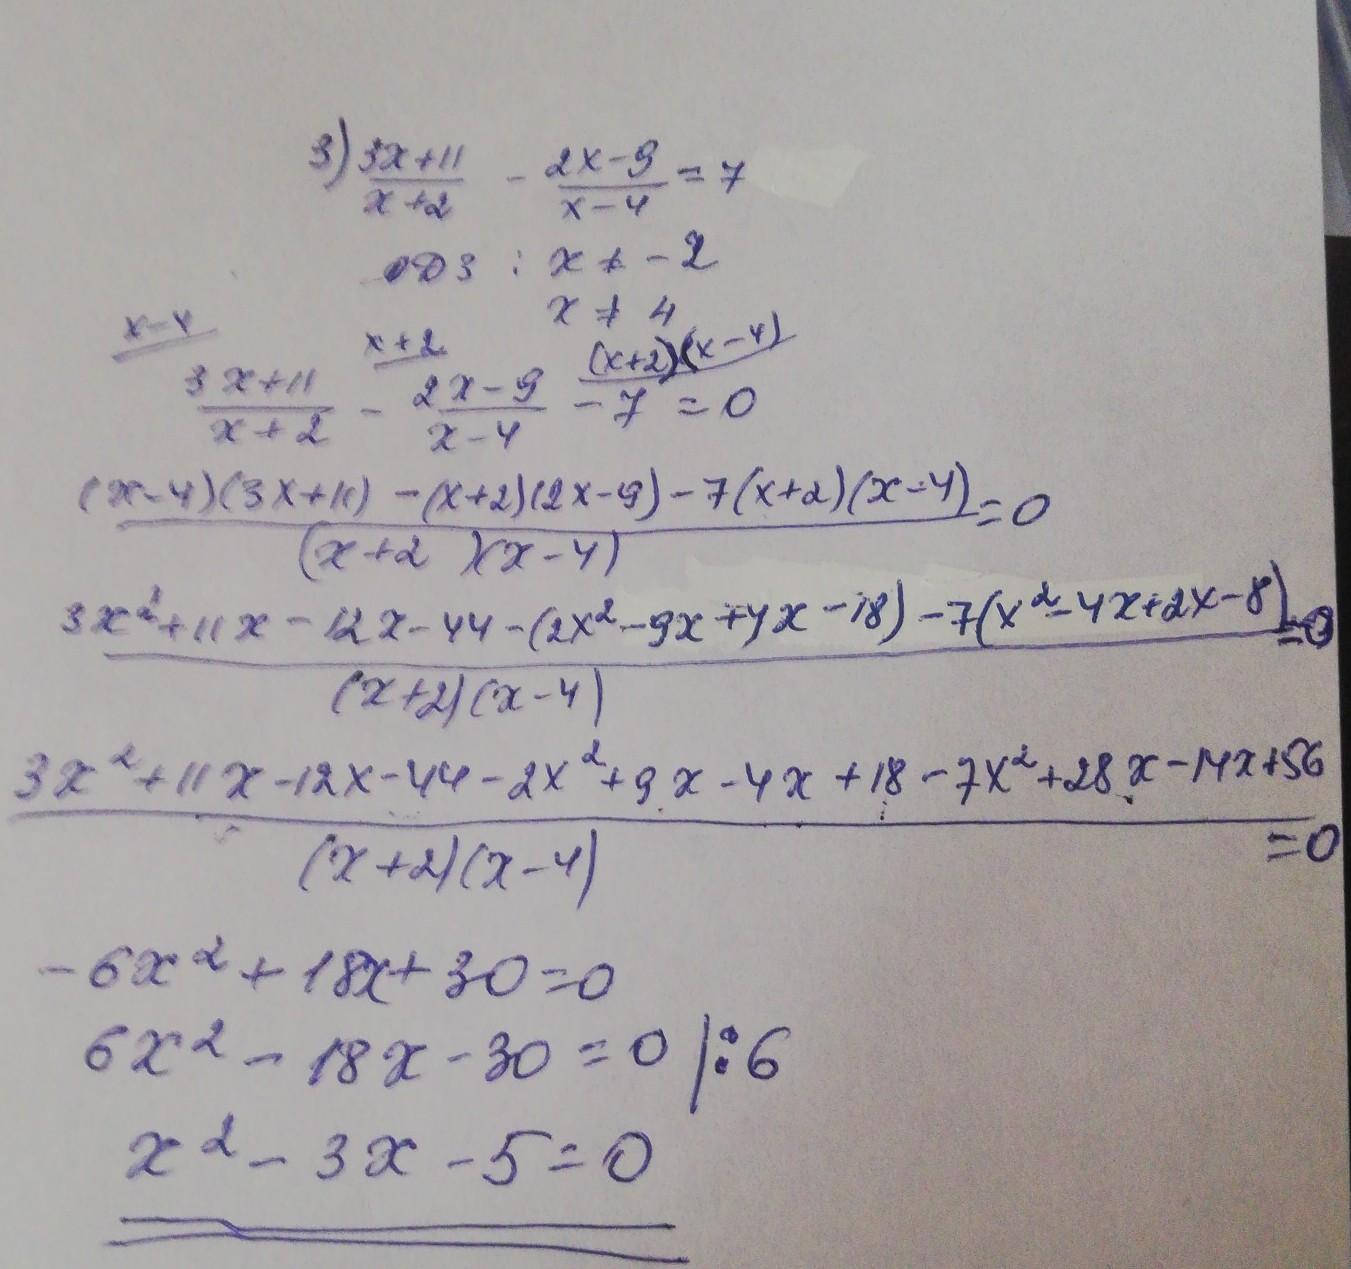 3) (3x+11)/(x+2) - (2x-9)/(x-4) = 7
ОДЗ : x ≠ -2
x ≠ 4
x-4 x+2 (x+2)(x-4)
(3x+11)/(x+2) - (2x-9)/(x-4) - 7 = 0
((x-4)(3x+11) - (x+2)(2x-9) - 7(x+2)(x-4))/((x+2)(x-4)) = 0
(3x²+11x-12x-44-(2x²-9x+4x-18)-7(x²-4x+2x-8))/((x+2)(x-4)) = 0
(3x²+11x-12x-44-2x²+9x-4x+18-7x²+28x-14x+56)/((x+2)(x-4)) = 0
-6x²+18x+30=0
6x²-18x-30=0 |:6
x²-3x-5=0